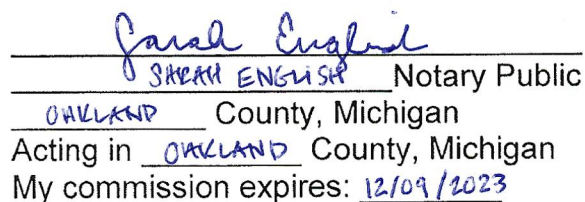 Sarah English
SARAH ENGLISH Notary Public
OAKLAND County, Michigan
Acting in OAKLAND County, Michigan
My commission expires: 12/09/2023